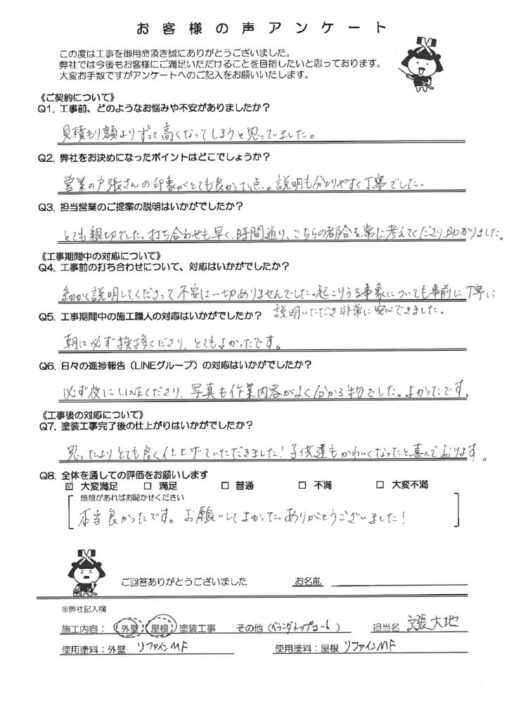 お客様の声アンケート
この度は工事を御用命頂き誠にありがとうございました。
弊社では今後もお客様にご満足いただけることを目指したいと思っております。
大変お手数ですがアンケートへのご記入をお願いいたします。
《ご契約について》
Q1. 工事前、どのようなお悩みや不安がありましたか？
見積もり額よりずっと高くなってしまうと思っていました。
Q2. 弊社をお決めになったポイントはどこでしょうか？
営業の戸張さんの印象がとても良かった点。説明も分かりやすく丁寧でした。
Q3. 担当営業のご提案の説明はいかがでしたか？
とても親切でした。打ち合わせも早く、時間通り、こちらの都合を常に考えてくださり助かりました。
《工事期間中の対応について》
Q4. 工事前の打ち合わせについて、対応はいかがでしたか？
細かく説明してくださって不安は一切ありませんでした。起こりうる事象についても事前に丁寧に
説明いただき非常に安心できました。
Q5. 工事期間中の施工職人の対応はいかがでしたか？
朝に必ず挨拶くださり、とてもよかったです。
Q6. 日々の進捗報告（LINEグループ）の対応はいかがでしたか？
必ず夜にLINEくださり、写真も作業内容がよく分かる物でした。よかったです。
《工事後の対応について》
Q7. 塗装工事完了後の仕上がりはいかがでしたか？
思ったよりとても良く仕上げていただきました！子供達もかわいくなったと喜んでおります。
Q8. 全体を通しての評価をお願いします
☑ 大変満足 □ 満足 □ 普通 □ 不満 □ 大変不満
感想があればお聞かせください
本当良かったです。お願いしてよかった。ありがとうございました！
ご回答ありがとうございました お名前
※弊社記入欄
施工内容：外壁・屋根 塗装工事 その他（ベランダトップコート） 担当名 大地
使用塗料：外壁 リファインMF 使用塗料：屋根 リファインMF